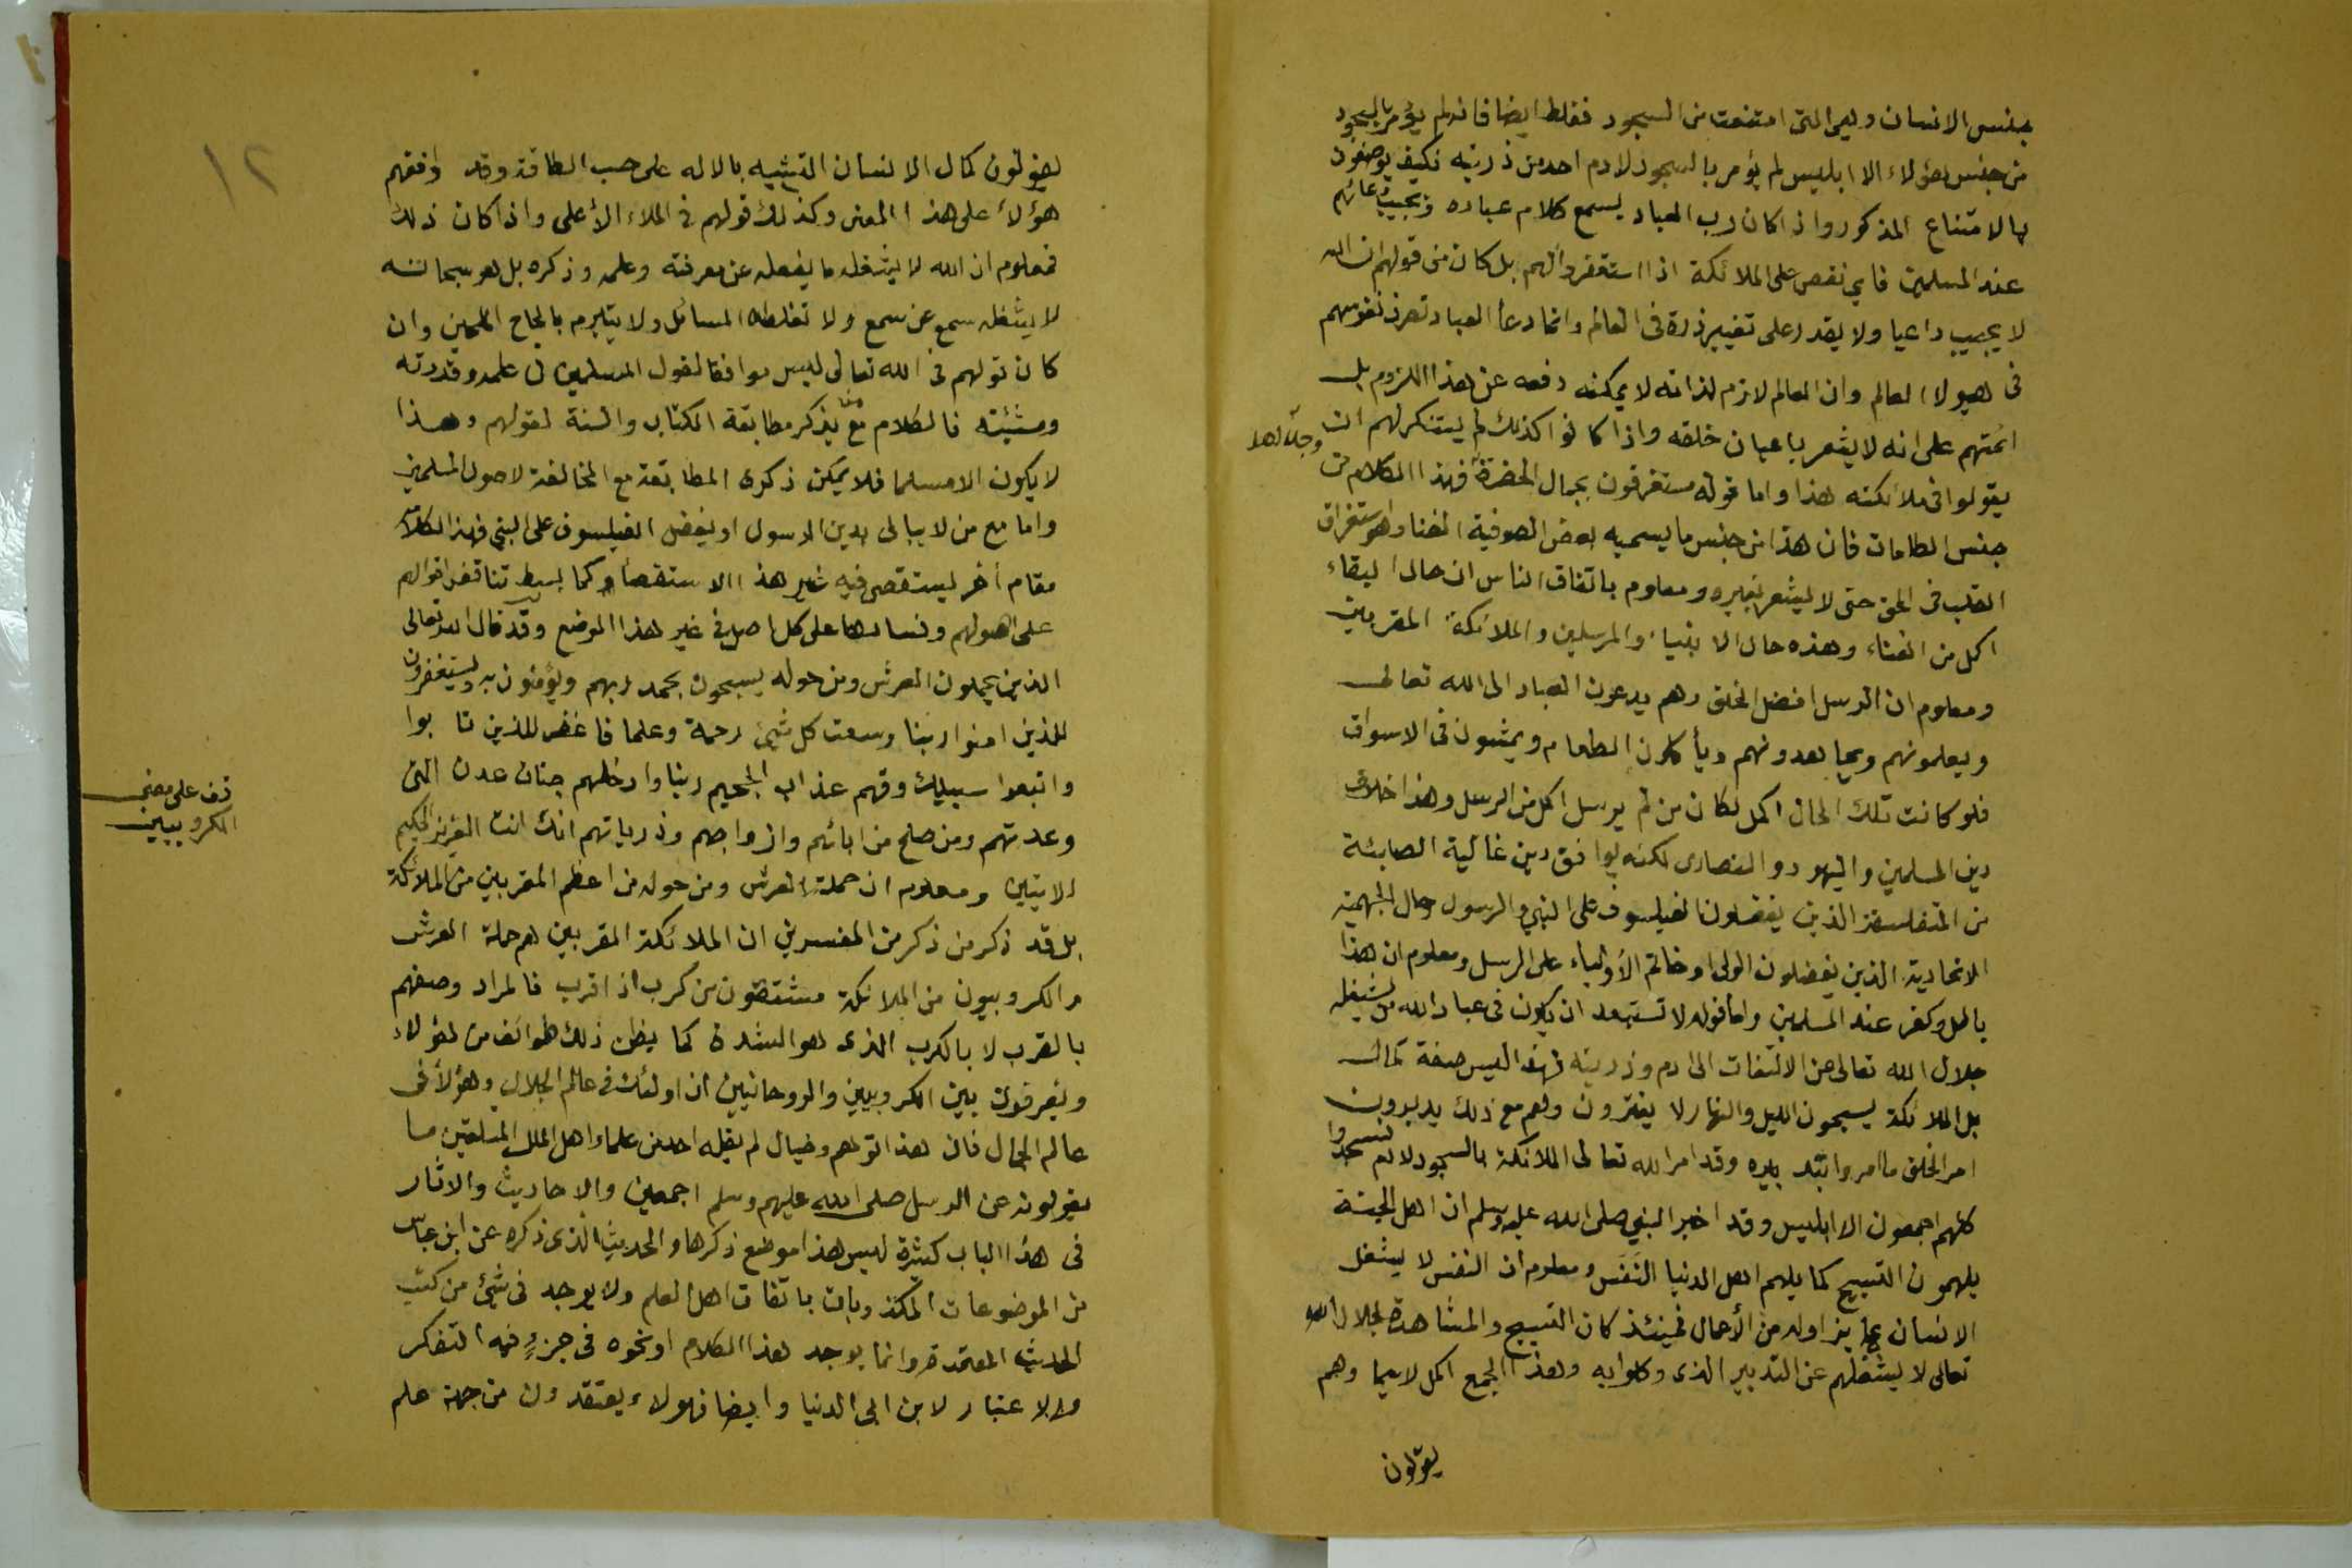 بجنس الانسان وهي التى امتنعت من السجود فغلط ايضا فانه لم يؤمر بالسجود
من جنس هؤلاء الا ابليس لم يؤمر بالسجود لادم احد من ذريته فكيف يوصفون
بالامتناع المذكور واذا كان رب العباد يسمع كلام عباده ويجيب دعائهم
عند المسلمين فاي نقص على الملائكة اذا استغفروا لهم بل كان من قولهم ان الله
لا يجيب داعيا ولا يقدر على تغيير ذرة فى العالم وانما دعأ العباد تصرف نفوسهم
فى هيولا العالم وان العالم لازم لذاته لا يمكنه دفعه عن هذا اللزوم بل
ائمتهم على انه لا يشعر باعيان خلقه واذا كانوا كذلك لم يستنكر لهم ان
يقولوا فى ملائكته هذا واما قوله مستغرقون بجمال الحضرة وجلالها فهذا الكلام من
جنس الطامات فان هذا من جنس ما يسميه بعض الصوفية الفنا وهو استغراق
القلب فى الحق حتى لا يشعر بغيره ومعلوم باتفاق الناس ان حال البقاء
اكمل من الفناء وهذه حال الانبياء والمرسلين والملائكة المقربين
ومعلوم ان الرسل افضل الخلق وهم يدعون العباد الى الله تعالى
ويعلمونهم ويجاهدونهم ويأكلون الطعام ويمشون فى الاسواق
فلو كانت تلك الحال اكمل لكان من لم يرسل اكمل من الرسل وهذا خلاف
دين المسلمين واليهود والنصارى لكنه يوافق دين غالية الصابئة
من المتفلسفة الذين يفضلون الفيلسوف على النبي والرسول وحال الجهمية
الاتحادية الذين يفضلون الولى او خاتم الأولياء على الرسل ومعلوم ان هذا
باطل وكفر عند المسلمين واما قوله لا تستبعد ان يكون فى عباد الله من يشغله
جلال الله تعالى عن الالتفات الى ادم وذريته فهذا ليس صفة كمال
بل الملائكة يسبحون الليل والنهار لا يفترون وهم مع ذلك يدبرون
امر الخلق ما امروا بتدبيره وقد امر الله تعالى الملائكة بالسجود لادم فسجدوا
كلهم اجمعون الا ابليس وقد اخبر النبي صلى الله عليه وسلم ان اهل الجنة
يلهمون التسبيح كما يلهم اهل الدنيا النَفَس ومعلوم ان النفس لا يشغل
الانسان عما يزاوله من الأعمال فحينئذ كان التسبيح والمشاهدة لجلال الله
تعالى لا يشغلهم عن التدبير الذى وكلوا به وهذا الجمع اكمل لاسيما وهم
يقولون
١٢
يقولون كمال الانسان التشبيه بالاله على حسب الطاقة وقد وافقهم
هؤلأ على هذا المعنى وكذلك قولهم فى الملاء الأعلى واذا كان ذلك
فمعلوم ان الله لا يشغله ما يفعله عن معرفته وعلمه وذكره بل هو سبحانه
لا يشغله سمع عن سمع ولا تغلطه المسائل ولا يتبرم بالحاح الملحين وان
كان قولهم فى الله تعالى ليس موافقا لقول المسلمين فى علمه وقدرته
ومشيئته فالكلام مع من يذكر مطابقة الكتاب والسنة لقولهم وهذا
لا يكون الا مسلما فلا يمكن ذكرى المطابقة مع المخالفة لاصول المسلمين
واما مع من لا يبالى بدين الرسول او يفضل الفيلسوف على النبي فهذا الكلام
مقام أخر ليستقصى فيه غير هذا الاستقصأ وكما بسط تناقض اقوالهم
على اصولهم وفسادها على كل اصل فى غير هذا الموضع وقد قال الله تعالى
الذين يحملون العرش ومن حوله يسبحون بحمد ربهم ويؤمنون به ويستغفرون
للذين امنوا ربنا وسعت كل شيئ رحمة وعلما فاغفر للذين تابوا
واتبعوا سبيلك وقهم عذاب الجحيم ربنا وادخلهم جنات عدن التى
وعدتهم ومن صلح من ابائهم وازواجهم وذرياتهم انك انت العزيز الحكيم
الايتين ومعلوم ان حملة العرش ومن حوله من اعظم المقربين من الملائكة
بل قد ذكر من ذكر من المفسرين ان الملائكة المقربين هم حملة العرش
والكروبيون من الملائكة مشتقون من كرب اذا قرب فالمراد وصفهم
بالقرب لا بالكرب الذى هو الشدة كما يظن ذلك طوائف من هؤلاء
ويفرقون بين الكروبيين والروحانيين ان اولئك فى عالم الجلال وهؤلأ فى
عالم الجمال فان هذا توهم وخيال لم يقله احد من علماء اهل الملل المتلقين ما
يقولونه عن الرسل صلى الله عليهم وسلم اجمعين والاحاديث والاثار
فى هذا الباب كثيرة ليس هذا موضع ذكرها والحديث الذى ذكره عن ابن عباس
من الموضوعات المكذوبات باتفاق اهل العلم ولا يوجد فى شيئ من كتب
الحديث المعتمدة وانما يوجد هذا الكلام او نحوه فى جزوٍ فيه التفكر
والاعتبار لابن ابى الدنيا وايضا فهولاء يعتقدون من جهة علم
قف على معنى
الكروبيين